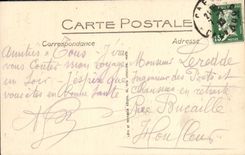 CARTE POSTALE
Correspondance
Adresse
Amitiés à Tous. J'irai
vous Conter mon voyage
un soir. J'espère que
vous êtes en bonne Santé
Monsieur Leredde
Ingénieur des Ponts et
Chaussées en retraite
Place Bucaille
Honfleur